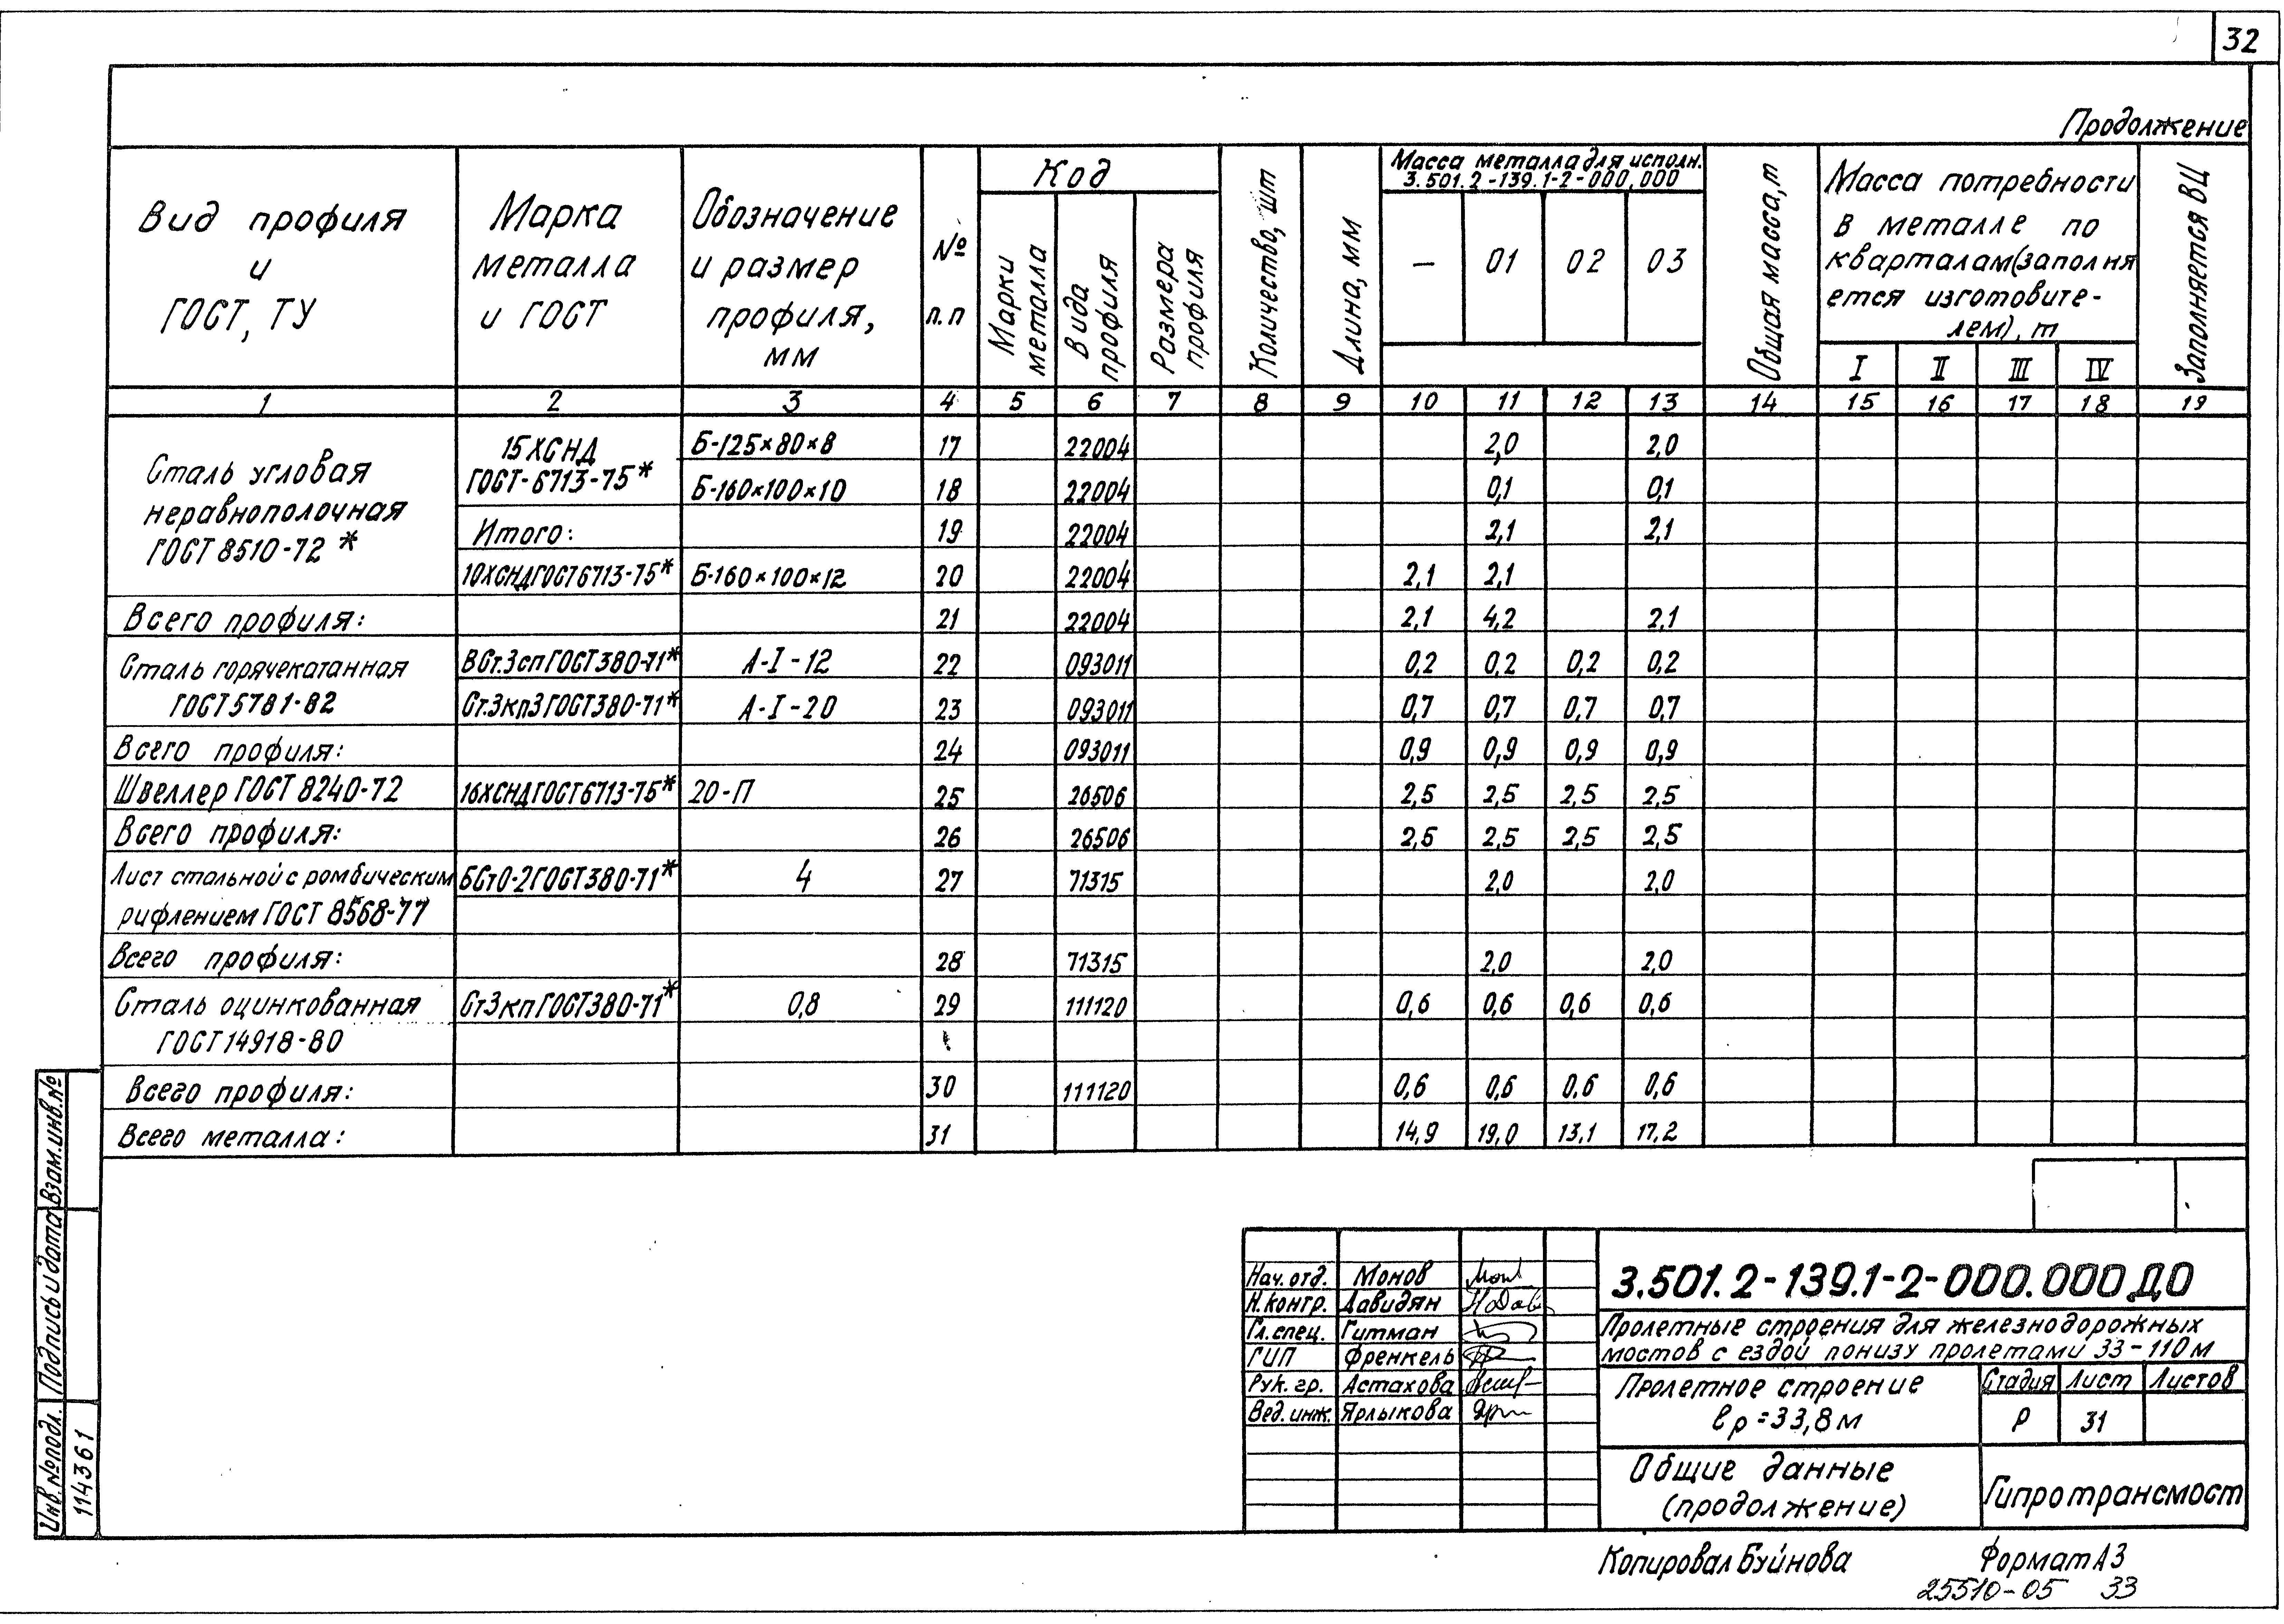 32
Продолжение
Вид профиля и ГОСТ, ТУ
Марка металла и ГОСТ
Обозначение и размер профиля, мм
№ п.п
Код
Марки металла
Вида профиля
Размера профиля
Количество, шт
Длина, мм
Масса металла для исполн. 3.501.2-139.1-2-000.000
— 01 02 03
Общая масса, т
Масса потребности в металле по кварталам (заполняется изготовителем), т
I II III IV
Заполняется ВЦ
1 2 3 4 5 6 7 8 9 10 11 12 13 14 15 16 17 18 19
Сталь угловая
неравнополочная
ГОСТ 8510-72 *
15ХСНД
ГОСТ-6713-75*
Б-125×80×8 17 22004 2,0 2,0
Б-160×100×10 18 22004 0,1 0,1
Итого: 19 22004 2,1 2,1
10ХСНД ГОСТ 6713-75* Б-160×100×12 20 22004 2,1 2,1
Всего профиля: 21 22004 2,1 4,2 2,1
Сталь горячекатанная
ГОСТ 5781-82
ВСт.3сп ГОСТ 380-71* А-I-12 22 093011 0,2 0,2 0,2 0,2
Ст.3кп3 ГОСТ 380-71* А-I-20 23 093011 0,7 0,7 0,7 0,7
Всего профиля: 24 093011 0,9 0,9 0,9 0,9
Швеллер ГОСТ 8240-72 16ХСНД ГОСТ 6713-75* 20-П 25 26506 2,5 2,5 2,5 2,5
Всего профиля: 26 26506 2,5 2,5 2,5 2,5
Лист стальной с ромбическим БСт0-2 ГОСТ 380-71* 4 27 71315 2,0 2,0
рифлением ГОСТ 8568-77
Всего профиля: 28 71315 2,0 2,0
Сталь оцинкованная Ст3кп ГОСТ 380-71* 0,8 29 111120 0,6 0,6 0,6 0,6
ГОСТ 14918-80
Всего профиля: 30 111120 0,6 0,6 0,6 0,6
Всего металла: 31 14,9 19,0 13,1 17,2
Взам. инв. №
Подпись и дата
Инв. № подл.
114361
Нач. отд. Монов
Н. контр. Давидян
Гл. спец. Гитман
ГИП Френкель
Рук. гр. Астахова
Вед. инж. Ярлыкова
3.501.2-139.1-2-000.000 ДО
Пролетные строения для железнодорожных
мостов с ездой понизу пролетами 33-110 м
Пролетное строение
lр = 33,8 м
Стадия Лист Листов
Р 31
Общие данные
(продолжение)
Гипротрансмост
Копировал Буйнова
Формат А3
25510-05 33